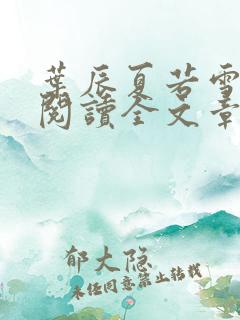 葉辰夏若雪
閱讀全文章
郁大隐
未经同意禁止转载